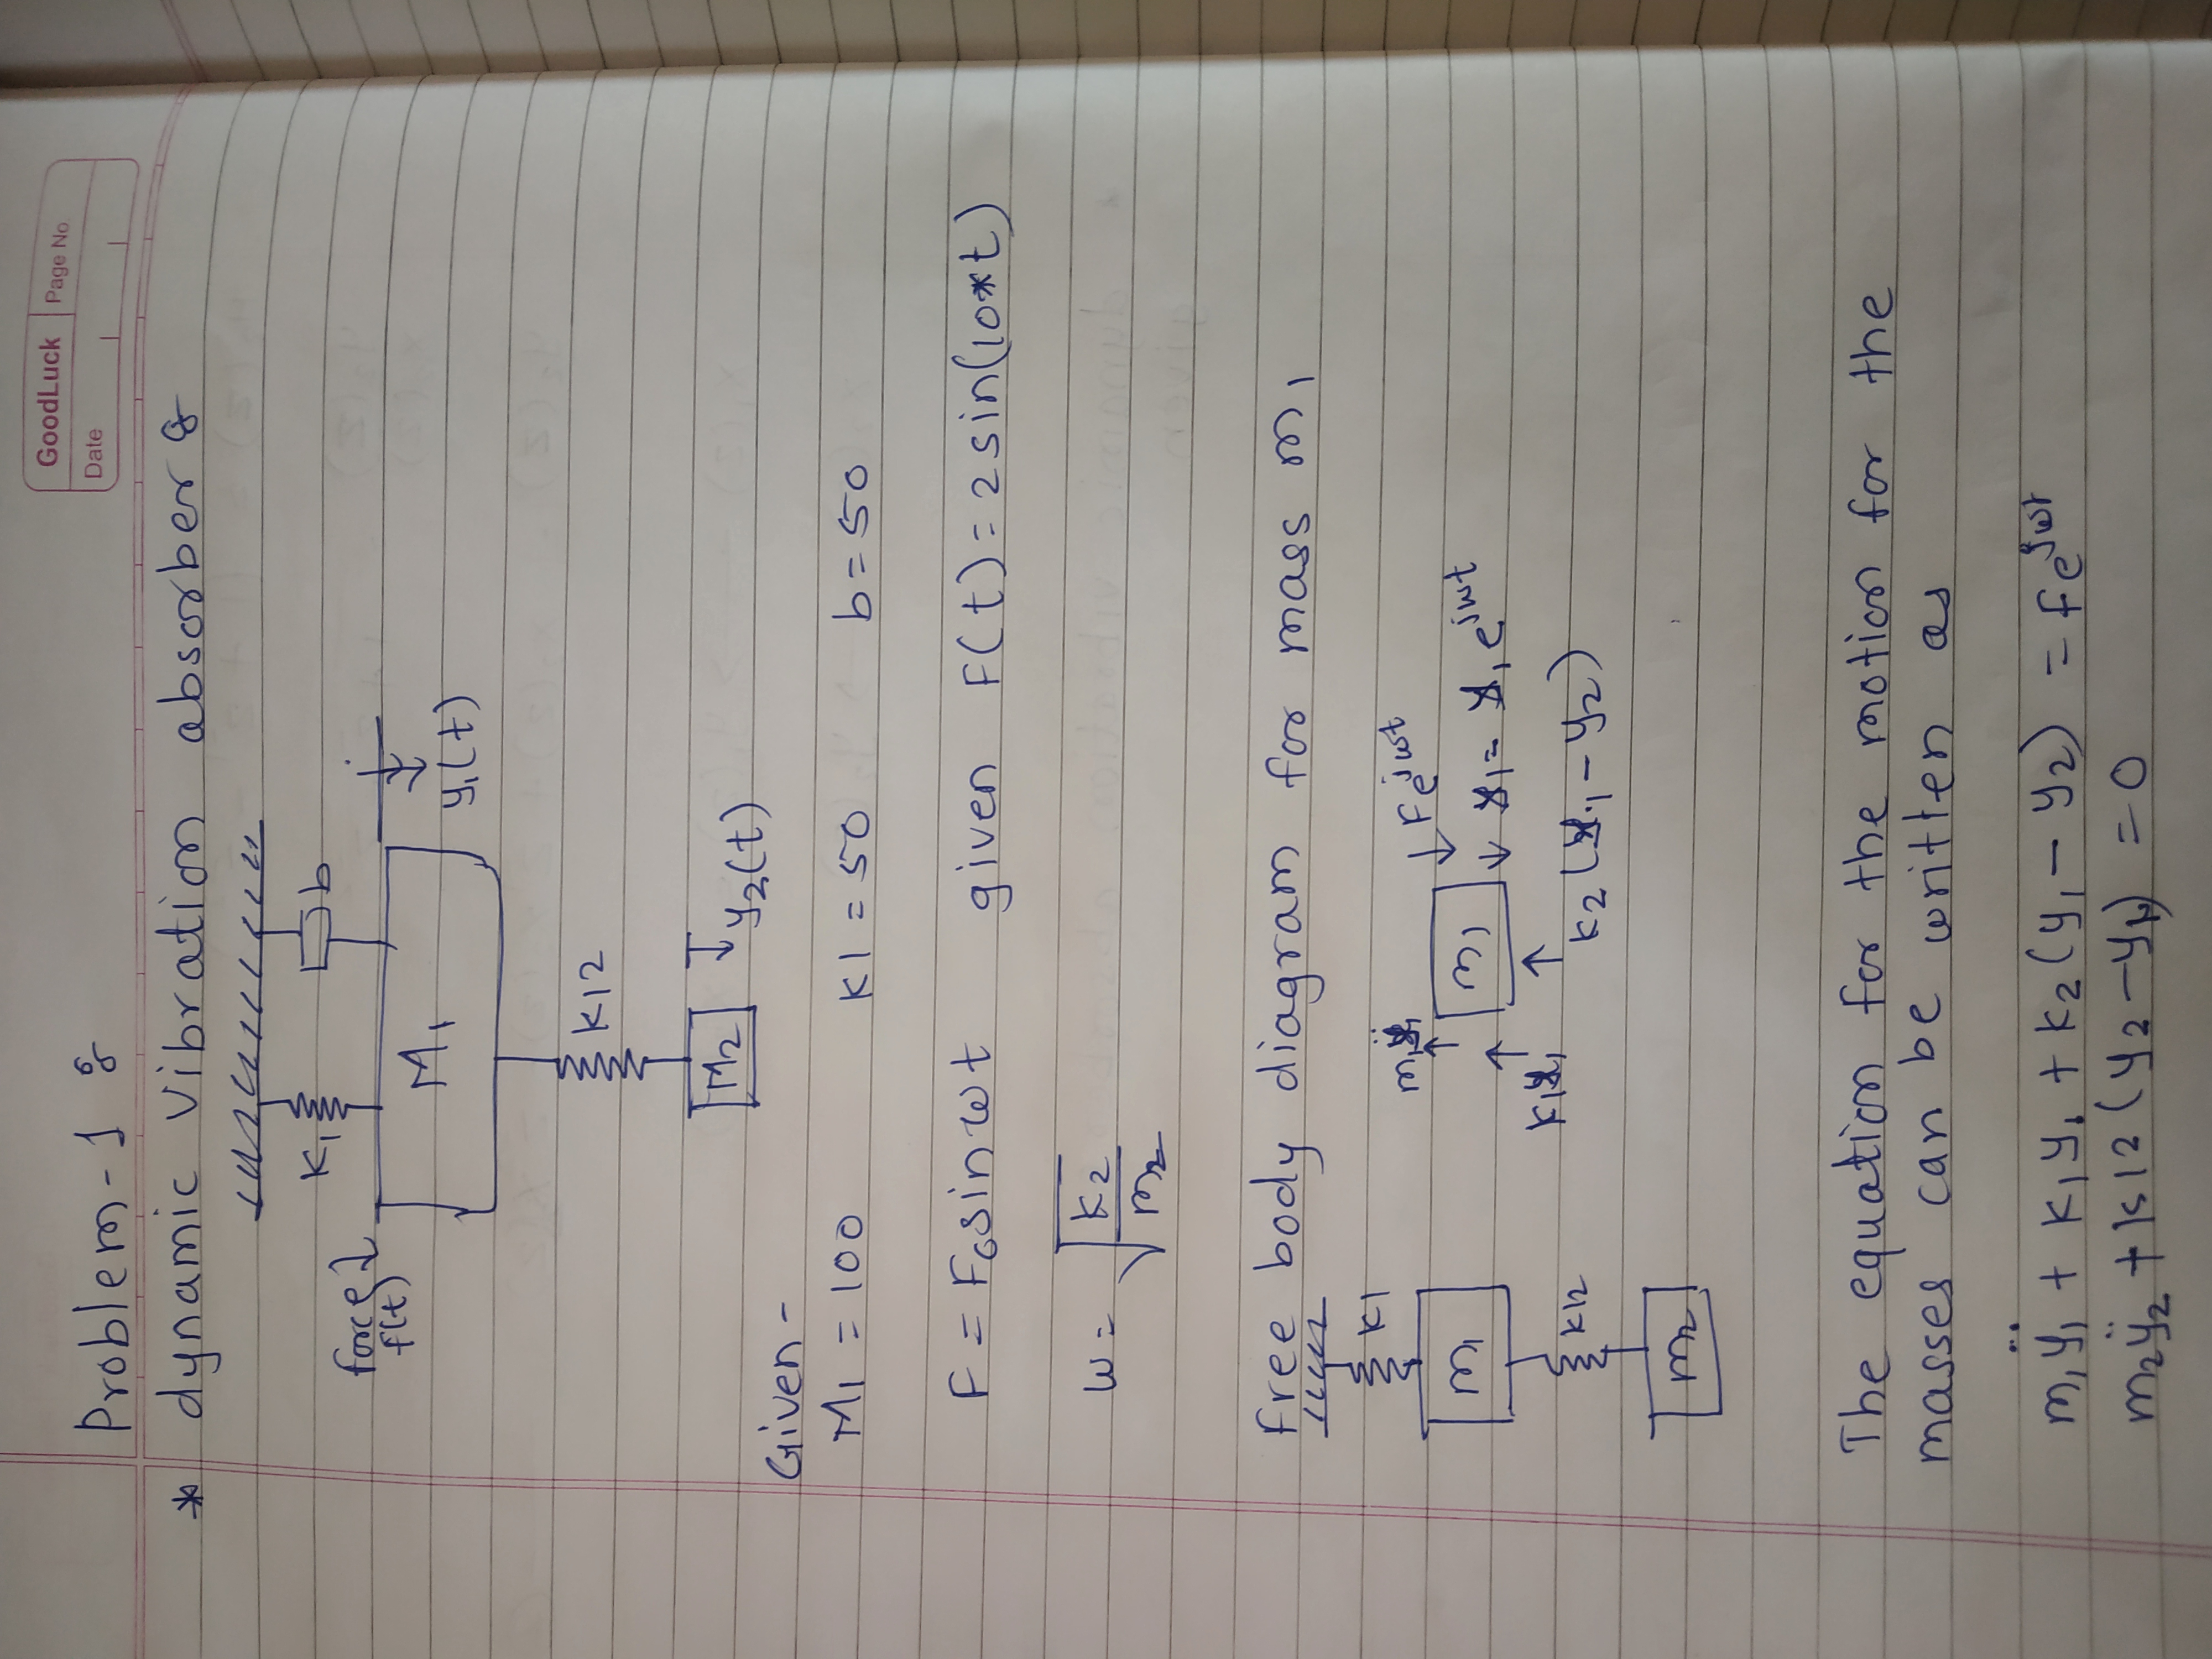 GoodLuck Page No
Date
Problem-1 :
* dynamic vibration absorber :
K1 b
force
f(t)
M1
y1(t)
K12
M2 y2(t)
Given -
M1 = 100 K1 = 50 b = 50
F = F0 sin wt given F(t) = 2 sin(10*t)
w = √(k2/m2)
free body diagram for mass m1
K1
m1ÿ1 Fe^jwt
m1 m1 y1 = y1 e^jwt
K1y1
K12 K2 (y1 - y2)
m2
The equation for the motion for the
masses can be written as
m1ÿ1 + K1y1 + K2(y1 - y2) = Fe^jwt
m2ÿ2 + K12(y2 - y1) = 0